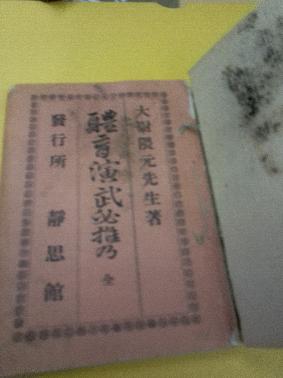 大㷉限元先生著
體育演武必携乃 全
發行所 靜思館